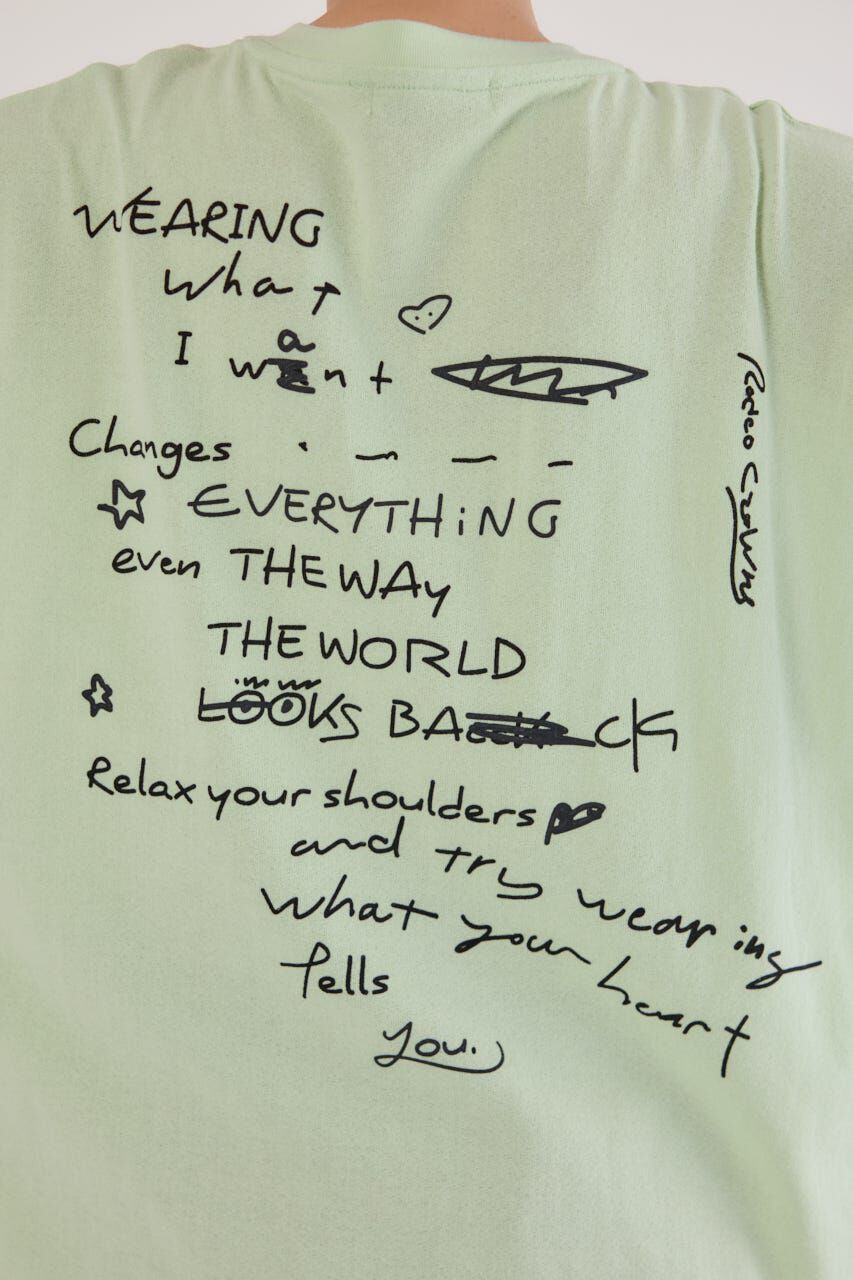 WEARING
what
I want
Changes . — — –
EVERYTHiNG
even THE WAy
THE WORLD
LOOKS BACK
Relax your shoulders
and try wearing
what your heart
tells
you.
Rodeo Crowns